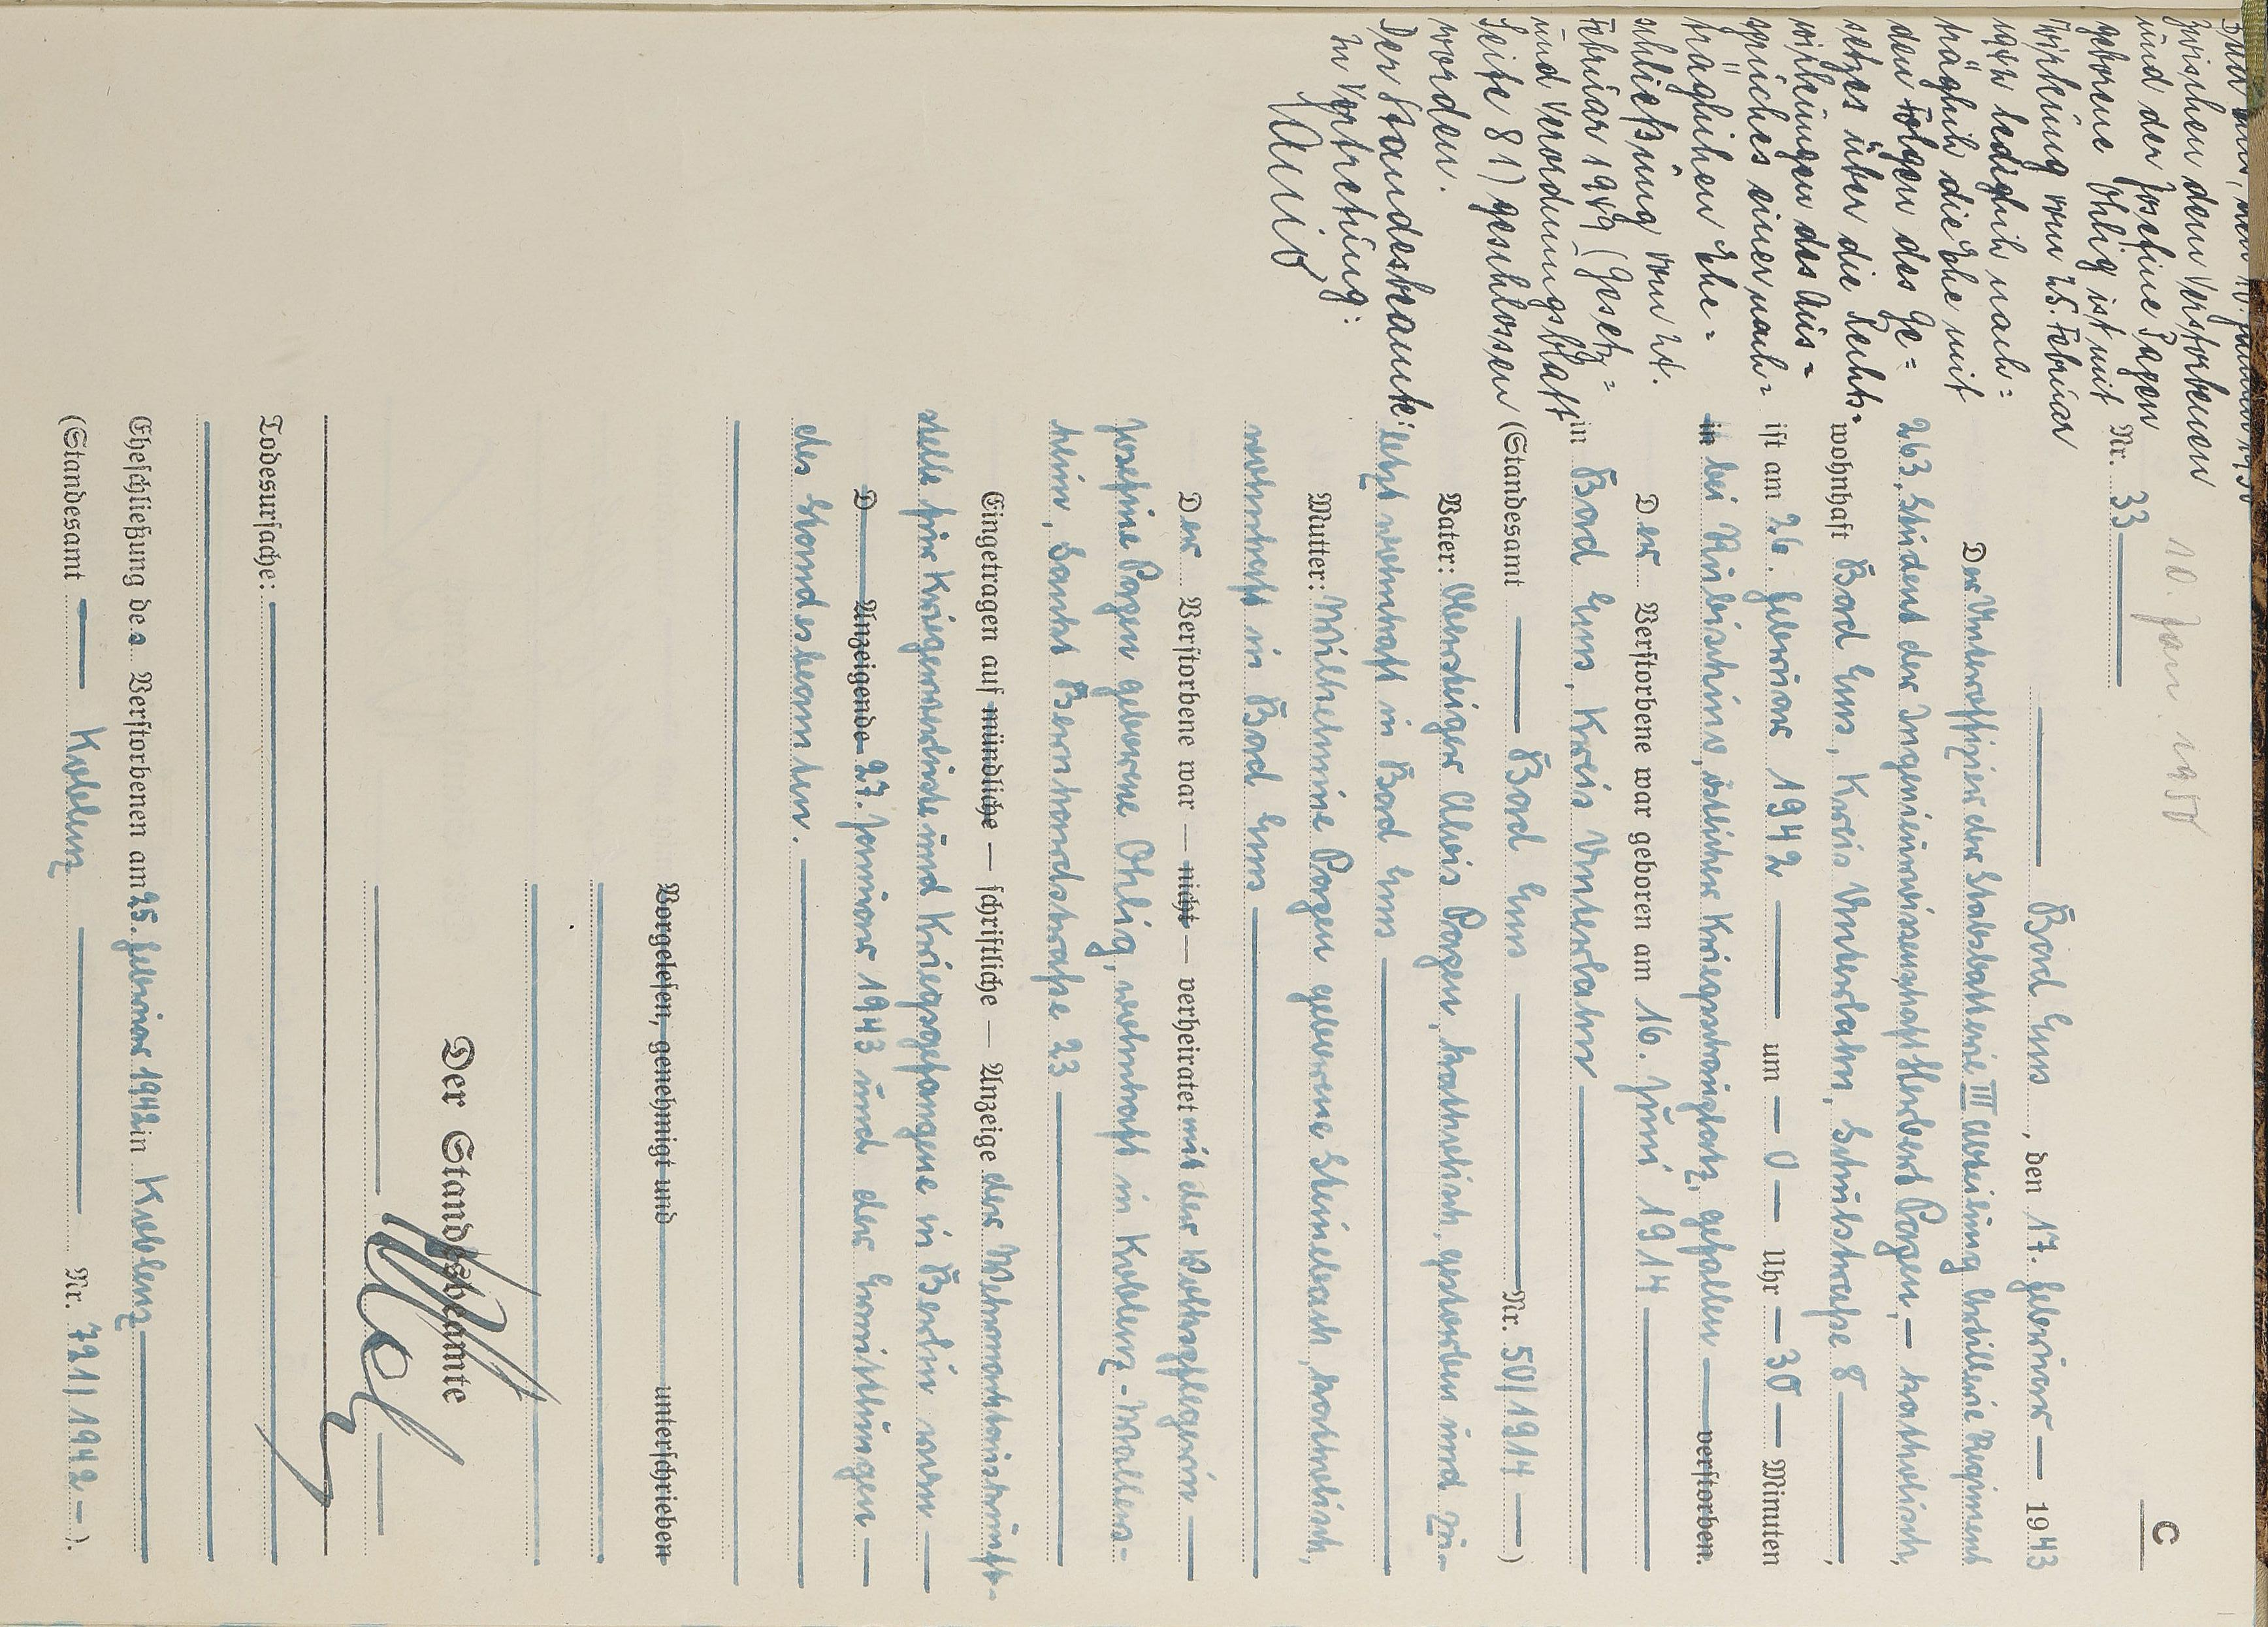 C
10. Jan. 1950
Nr. 33
Bad Ems, den 17. Februar 1943
Der Unteroffizier der Stabsbatterie III Abteilung Artillerie Regiment
263, Student der Ingenieurwissenschaft Herbert Pagen, – katholisch,
wohnhaft Bad Ems, Kreis Unterlahn, Schulstraße 8,
ist am 26. Februar 1942 um – 0 – Uhr – 30 – Minuten
in bei östlicher Kriegsschauplatz, gefallen verstorben.
Der Verstorbene war geboren am 16. Juni 1914
in Bad Ems, Kreis Unterlahn
(Standesamt Bad Ems Nr. 50/1914 –)
Vater: Obersteiger Alois Pagen, katholisch, gestorben und zu-
letzt wohnhaft in Bad Ems
Mutter: Wilhelmine Pagen geborene Steinebach, katholisch,
wohnhaft in Bad Ems
Der Verstorbene war – nicht – verheiratet mit der Volkspflegerin
Josefine Pagen geborene Ohlig, wohnhaft in Koblenz-Wallers-
heim, Sankt Bernhardstraße 23
Eingetragen auf mündliche – schriftliche – Anzeige der Wehrmachtauskunft-
stelle für Kriegerverluste und Kriegsgefangene in Berlin vom
D Anzeigende 27. Januar 1943 und der Ermittlungen
des Standesbeamten.
Vorgelesen, genehmigt und unterschrieben
Der Standesbeamte
Todesursache:
Eheschließung des Verstorbenen am 25. Februar 1942 in Koblenz
(Standesamt Koblenz Nr. 721/1942 –).
zwischen dem Verstorbenen
und der Josefine Pagen
geborene Ohlig ist mit
Wirkung vom 25. Februar
1942 lediglich nach=
träglich die Ehe mit
den Folgen des Ge=
setzes über die Rechts=
wirkungen des Aus=
spruches einer nach=
träglichen Ehe=
schließung vom 24.
Februar 1949 (Gesetz=
und Verordnungsblatt
Seite 81) geschlossen
worden.
Der Standesbeamte:
In Vertretung: